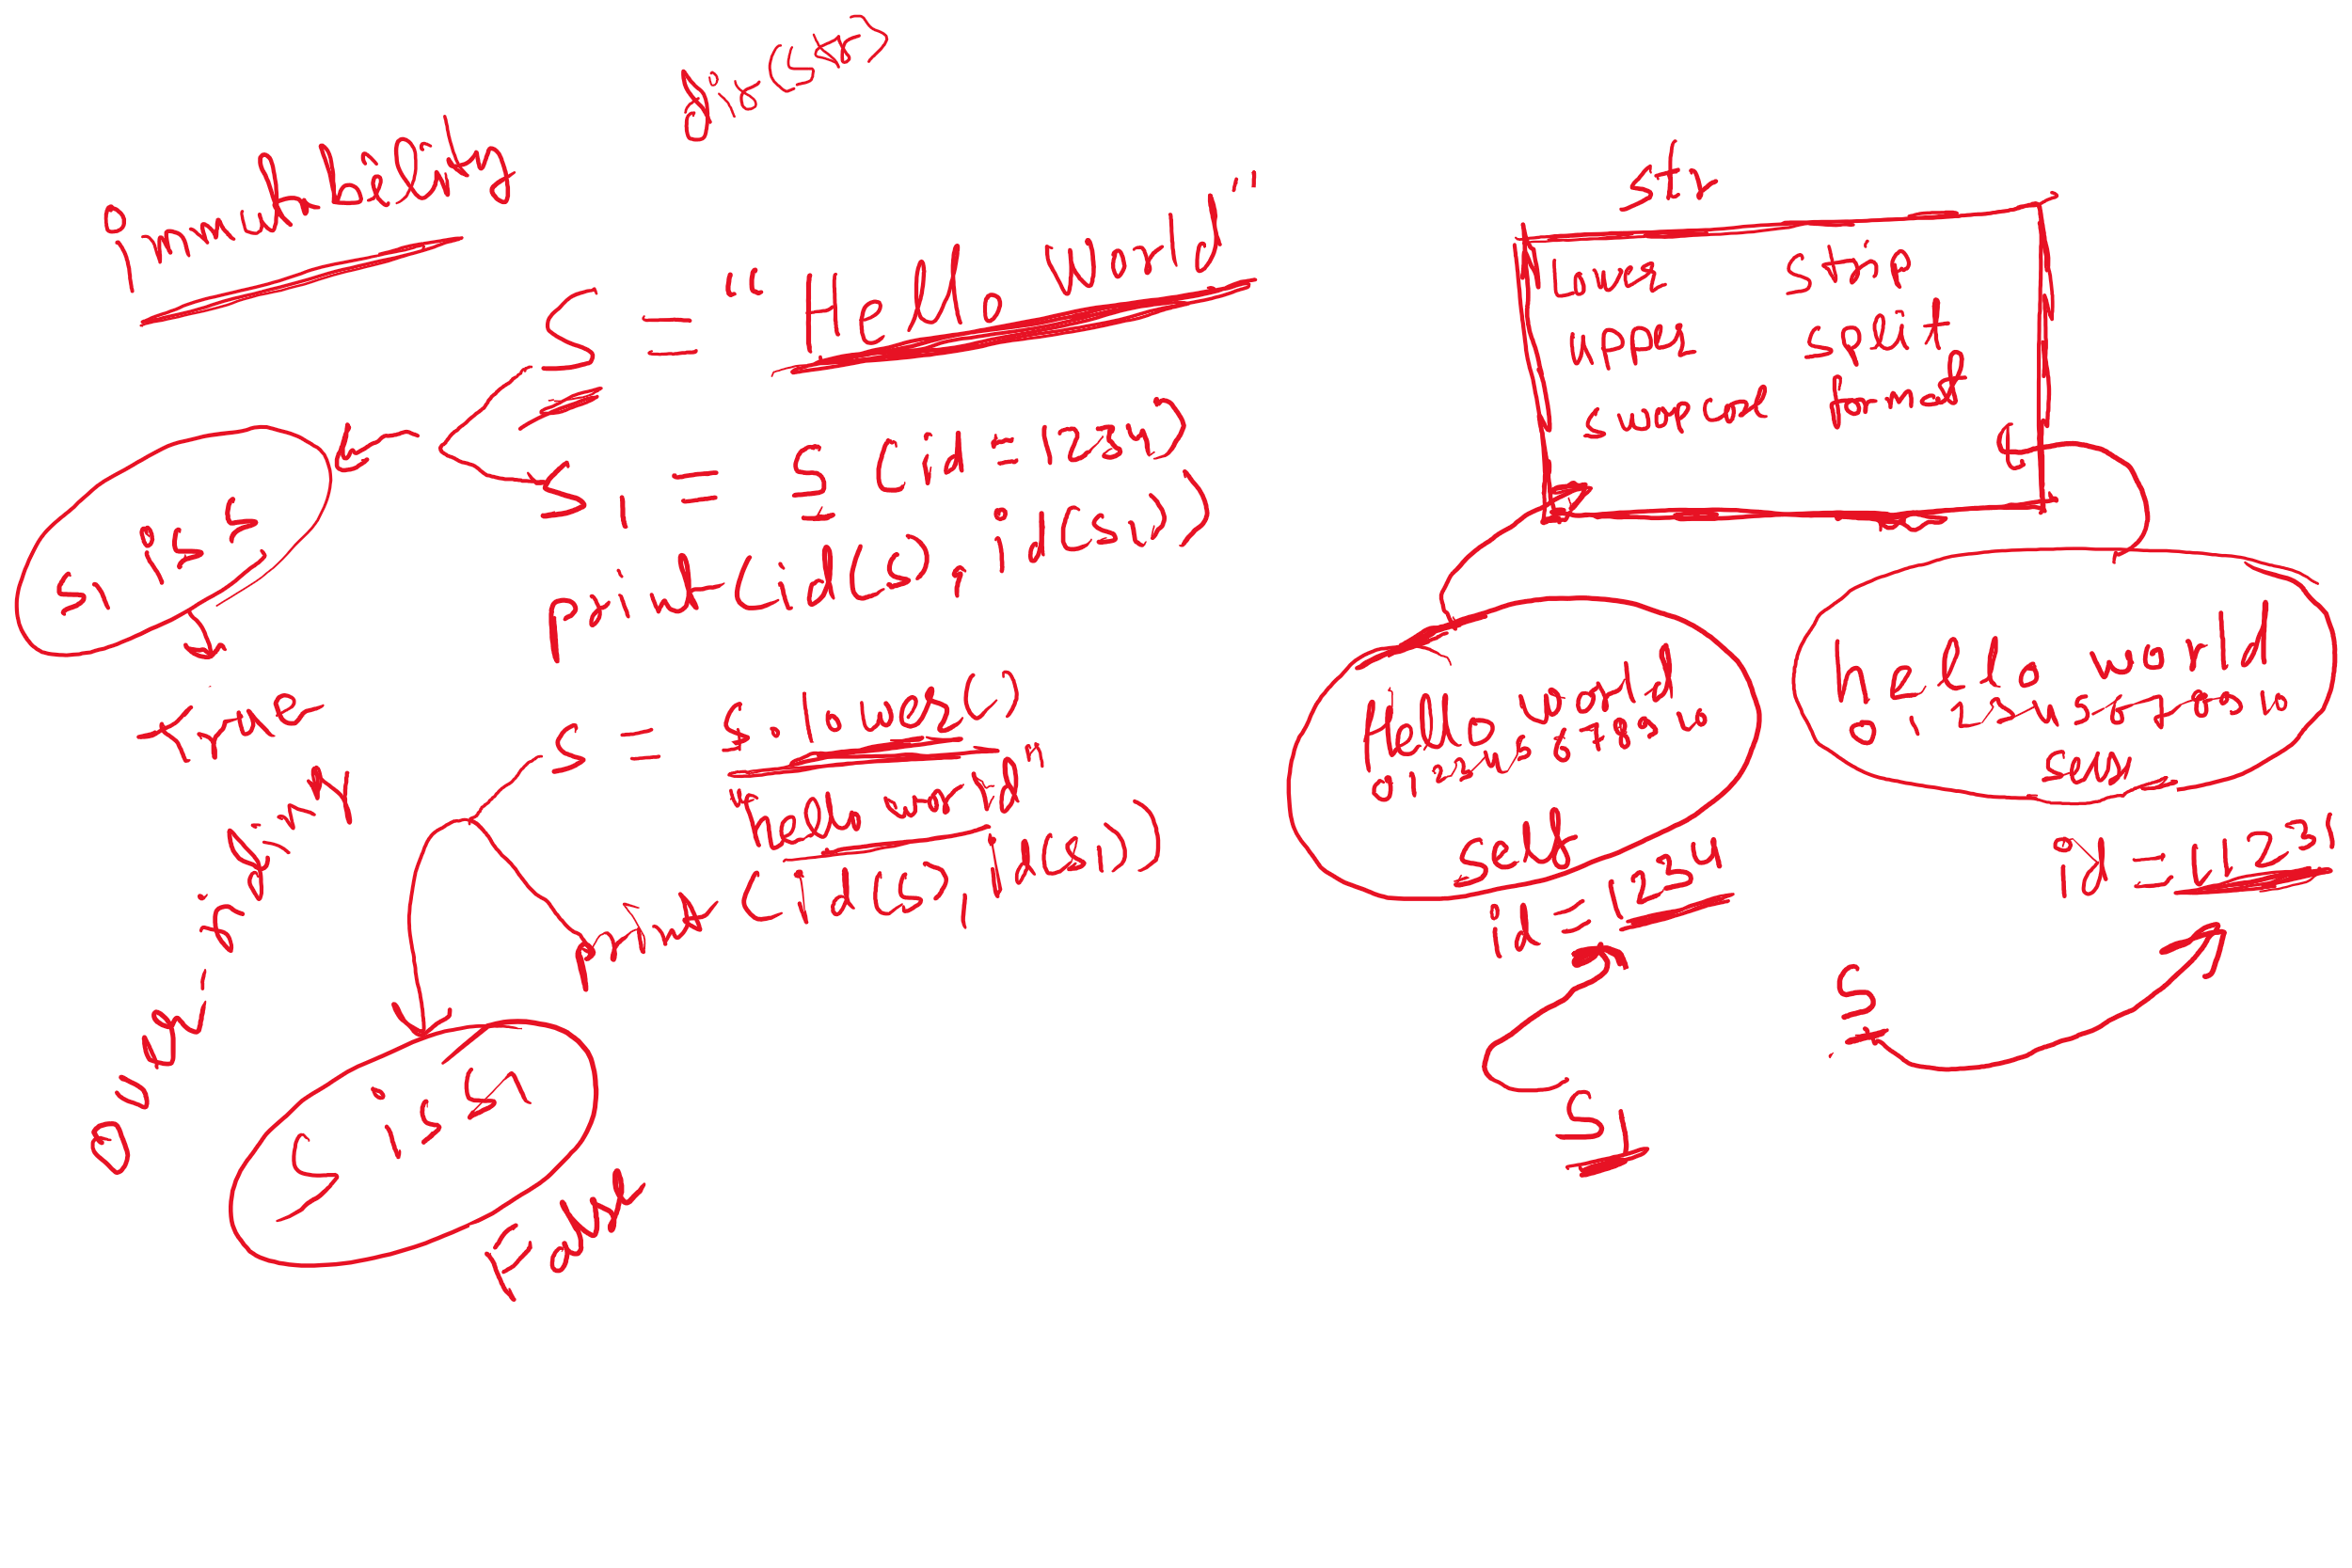 immutability
dir(str)
S = "Hello World"
S1 = S (id=1234)
print(id(s), id(s1))
S1 is S
True
S = s.lower()
"hello world"
print(id(s), id(s1))
over-riding
S is S1
False
str
lower strip
upper split
swapcase format
Hello world
0 1 2 3 4 5 6 7 8 9 10
self
id = 1234
S1
hello world
0 1 2 3 4 5 6 7 8 9 10
self
S